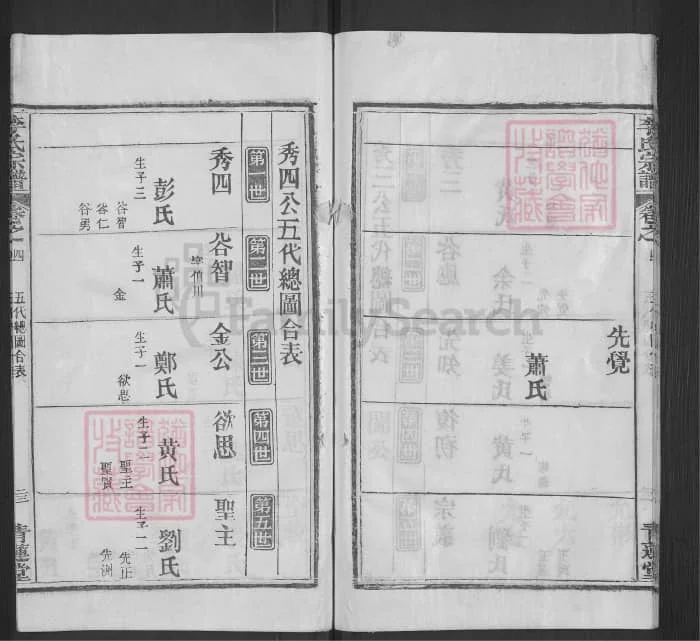 先覺
蕭氏
秀四公五代總圖合表
第一世
秀四
彭氏
生子三
谷智
谷仁
谷勇
第二世
谷智
字伯川
蕭氏
生子一
金
第三世
金公
鄭氏
生子一
欲思
第四世
欲思
黃氏
生子二
聖主
聖賢
第五世
聖主
劉氏
生子二
先正
先洲
李氏宗譜
卷之一
五代總圖合表
三
青蓮堂
FamilySearch